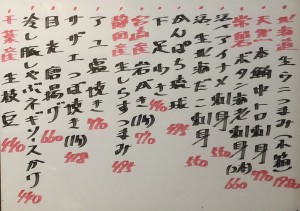 北海道 生ウニつまみ(小箱) 1980
天然 本鮪中トロ刺身 770
常磐 ボタン海老刺身(2本) 660
活〆アイナメ刺身 550
活生北海だこ刺身 550
かんぱち琉球 495
下足かき揚 440
宮城産 岩がき(1ヶ) 770
静岡産 生しらすつまみ 495
アユ塩焼き 770
サザエつぼ焼き(1ヶ)
目光唐揚げ 660
冷し豚しゃぶネギソースかけ 440
千葉産 生枝豆 440